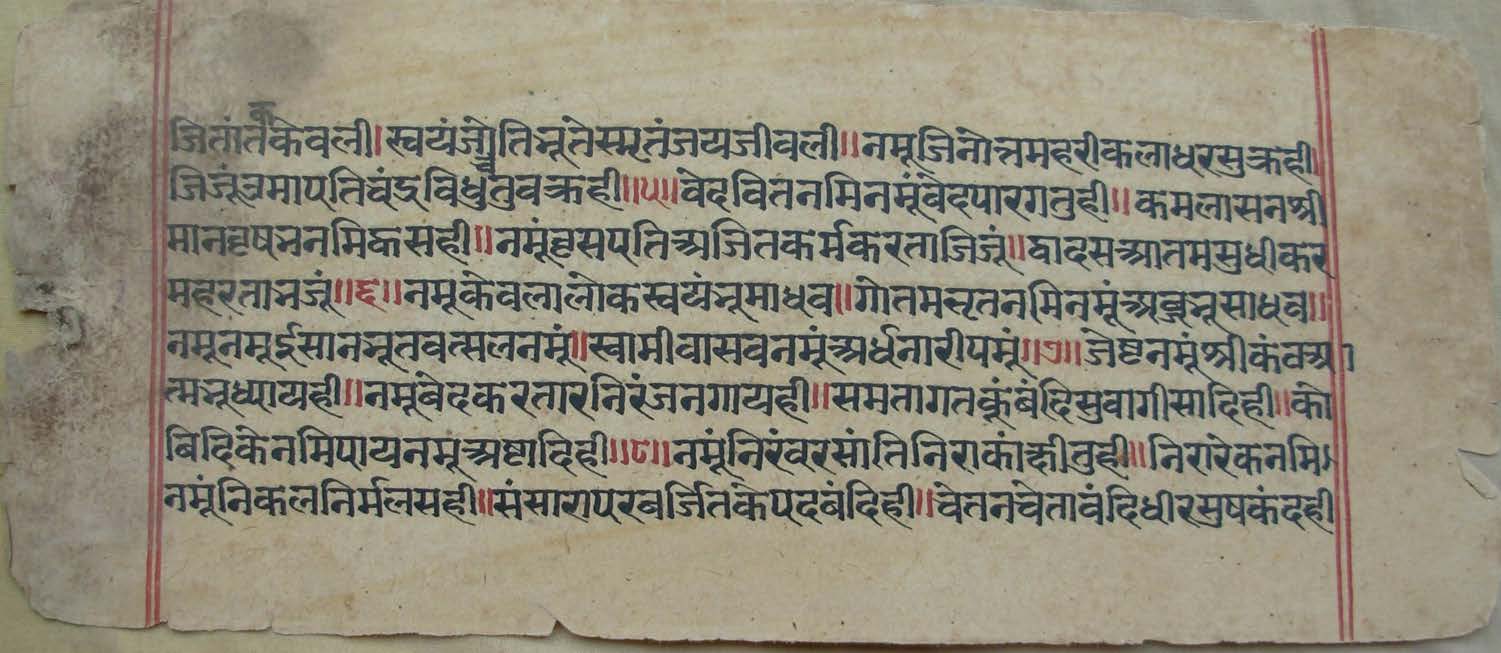 जितांतकेवली। स्वयंज्योतिभूतेस्मृतंजयजीवली॥ नमूजिनोत्तमहरीकलाधरसुक्रही
जिजूंउमापतिचंद्रविधुंतुवक्रही॥५॥ वेदवितनमिनमूंवेदपारगतुही॥ कमलासनश्री
मानवृषभनमिकसही॥ नमूंवृसपतिअजितकर्मकरताजिजूं॥ द्वादसआतमसुधीकर
महरताभजूं॥६॥ नमूकेवलालोकस्वयंभूमाधव॥ गोतमसृतनमिनमूंअब्जभूसाधव॥
नमूनमूईसानभूतवत्सलनमूं॥ स्वामीवासवनमूंअर्धनारीपमूं॥७॥ जेष्टनमूंश्रीकंवआ
त्मभूध्यायही॥ नमूवेदकरतारनिरंजनगायही॥ समतागतकूंबंदिसुवागीसादिही॥ को
बिदिकेनमिपायनमूअष्टादिही॥८॥ नमूंनिरंवरसांतिनिराकांक्षीतुही॥ निरारेकनमि
नमूंनिकलनिर्मलसही॥ संसारापरबर्जितकेपदबंदिही॥ चेतनचेतावंदिधीरसुषकंदही